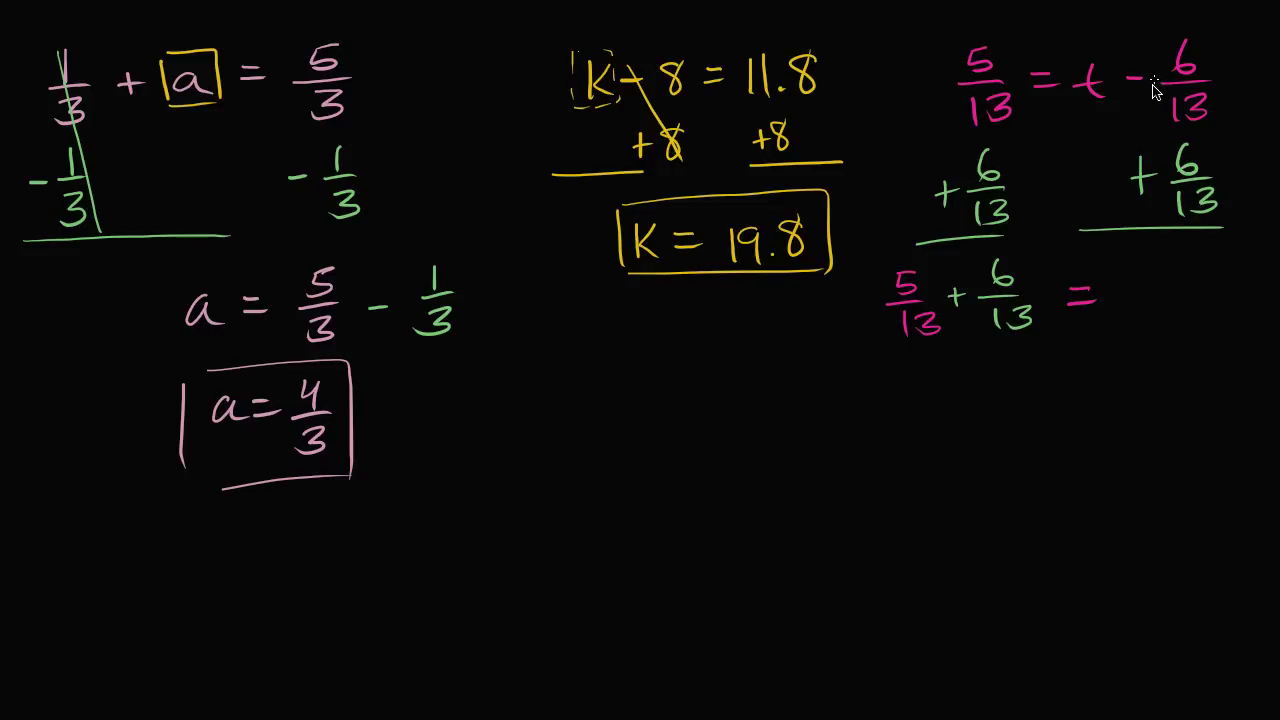 1/3 + a = 5/3
- 1/3 - 1/3
a = 5/3 - 1/3
a = 4/3
K - 8 = 11.8
+ 8 +8
K = 19.8
5/13 = t - 6/13
+ 6/13 + 6/13
5/13 + 6/13 =